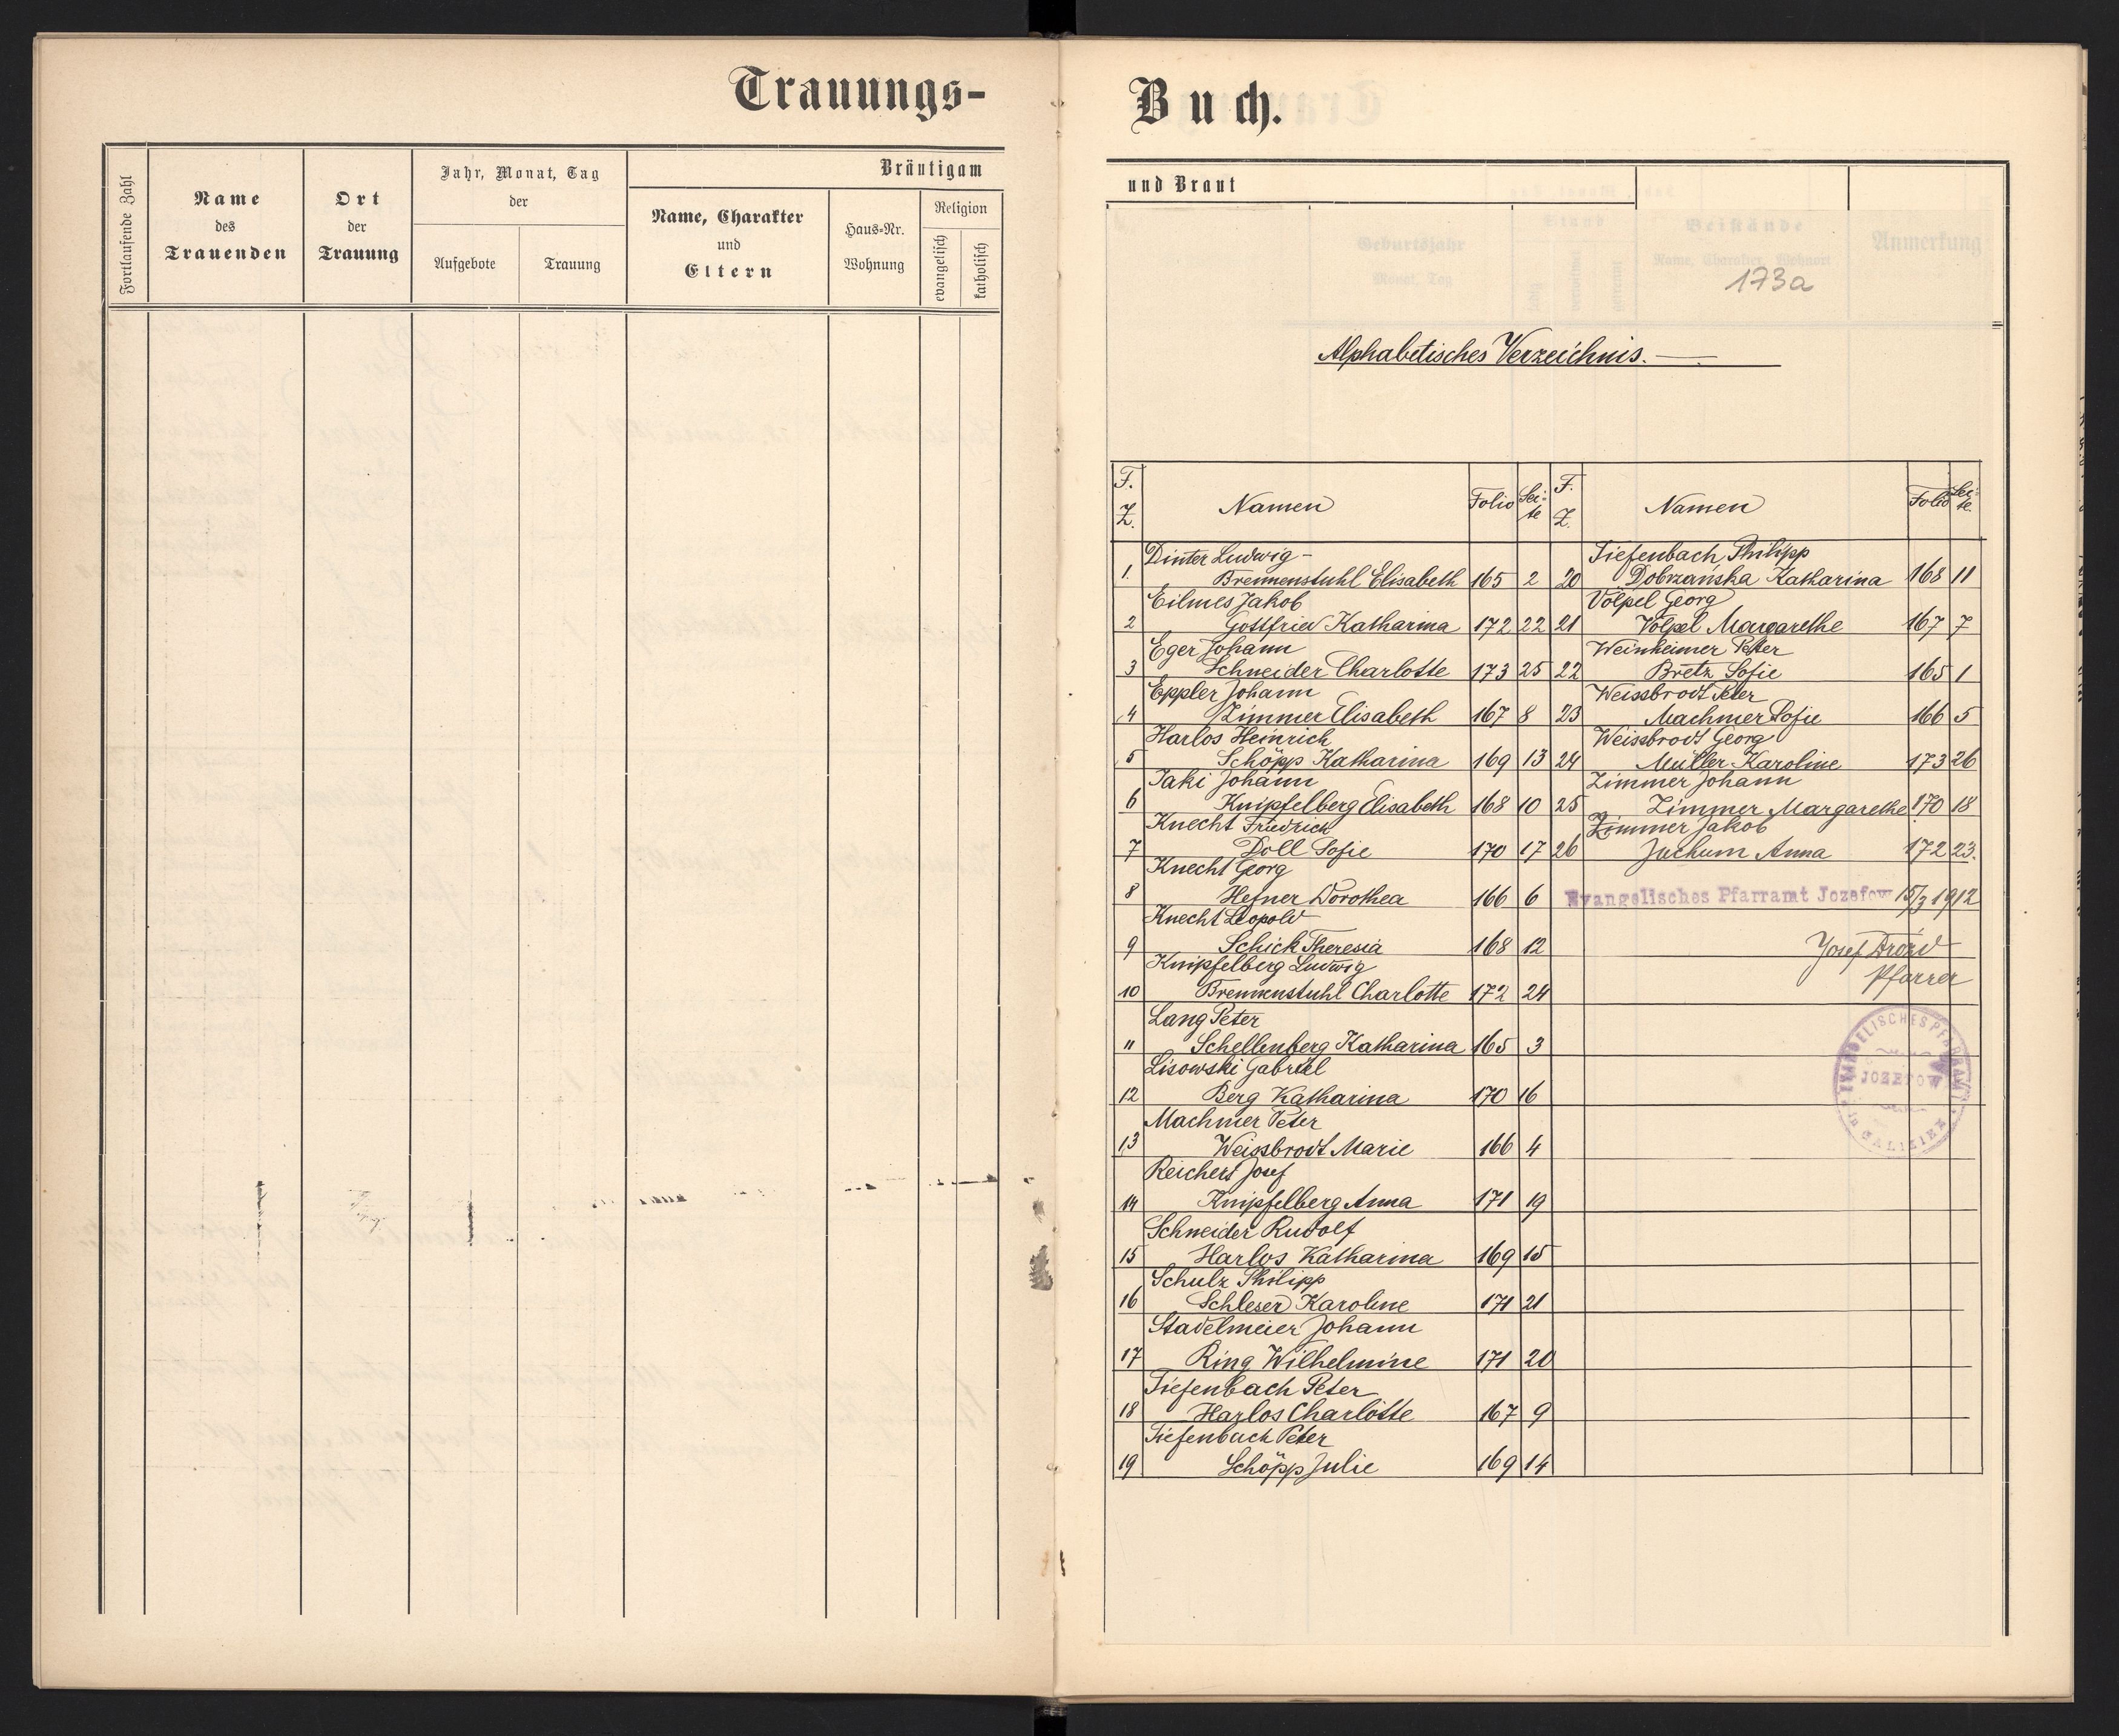 Trauungs-
Fortlaufende Zahl
Name
des
Trauenden
Ort
der
Trauung
Jahr, Monat, Tag
der
Aufgebote
Trauung
Bräutigam
Name, Charakter
und
Eltern
Haus-Nr.
Wohnung
Religion
evangelisch
katholisch
Buch.
und Braut
173a
Alphabetisches Verzeichnis.
F. Z. Namen Folio Sei-te F. Z. Namen Folio Sei-te.
Dinter Ludwig -
1. Brennenstuhl Elisabeth 165 2
Eilmes Jakob
2 Gottfried Katharina 172 22
Eger Johann
3 Schneider Charlotte 173 25
Eppler Johann
4 Zimmer Elisabeth 167 8
Harlos Heinrich
5 Schöpp Katharina 169 13
Jaki Johann
6 Knipfelberg Elisabeth 168 10
Knecht Friedrich
7 Doll Sofie 170 17
Knecht Georg
8 Hefner Dorothea 166 6
Knecht Leopold
9 Schick Theresia 168 12
Knipfelberg Ludwig
10 Brennenstuhl Charlotte 172 24
Lang Peter
11 Schellenberg Katharina 165 3
Lisowski Gabriel
12 Berg Katharina 170 16
Machmer Peter
13 Weissbrodt Marie 166 4
Reichert Josef
14 Knipfelberg Anna 171 19
Schneider Rudolf
15 Harlos Katharina 169 15
Schulz Philipp
16 Schleser Karoline 171 21
Stadelmeier Johann
17 Ring Wilhelmine 171 20
Tiefenbach Peter
18 Harlos Charlotte 167 9
Tiefenbach Peter
19 Schöpp Julie 169 14
Tiefenbach Philipp
20 Dobrzańska Katharina 168 11
Völpel Georg
21 Völpel Margarethe 167 7
Weinheimer Peter
22 Bretz Sofie 165 1
Weissbrodt Peter
23 Machmer Sofie 166 5
Weissbrodt Georg
24 Müller Karoline 173 26
Zimmer Johann
25 Zimmer Margarethe 170 18
Zimmer Jakob
26 Jachum Anna 172 23.
Evangelisches Pfarramt Jozefow 15/3 1912
Josef Drozd
Pfarrer
EVANGELISCHES PFARRAMT
JOZEFOW
in GALIZIEN